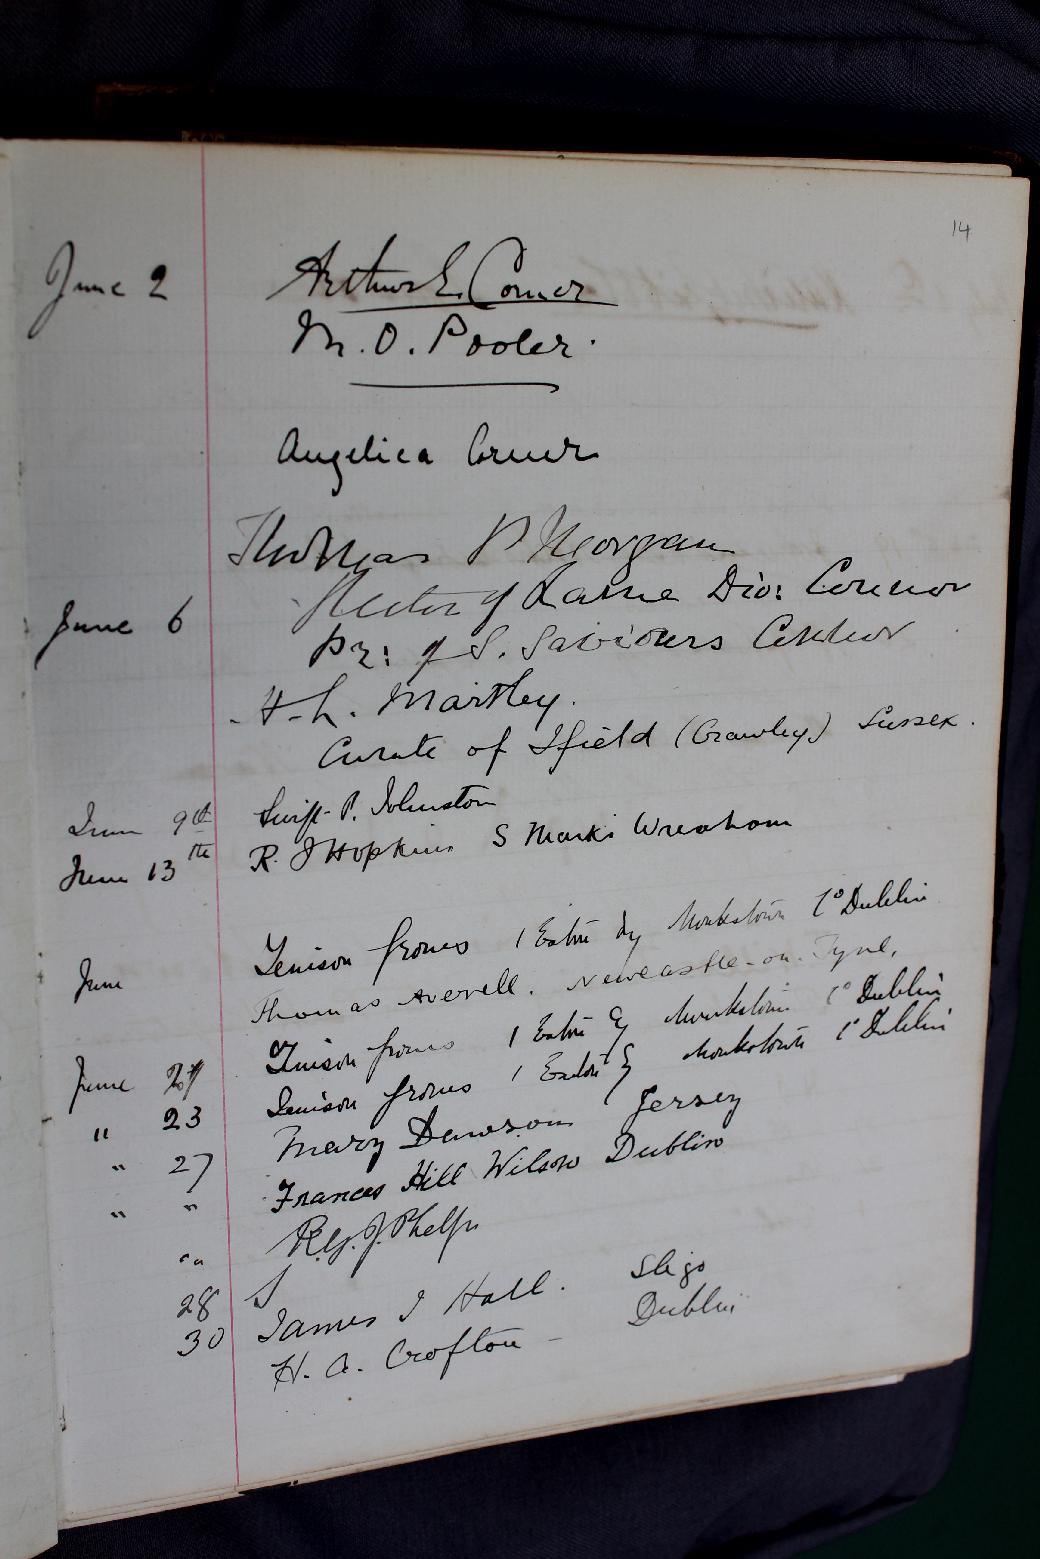 14
June 2 Arthur E. Corner
M. O. Pooler.
Angelica Corner
Thomas P Morgan
Rector of Larne Dio: Connor
June 6 Pr: of S. Saviours Connor
H. L. Martley.
Curate of Ifield (Crawley) Sussex.
June 9th Swift P. Johnston
June 13th R. J Hopkins S Marks Wrexham
June Tenison Groves 1 Eaton Monkstown Co Dublin
Thomas Averell. Newcastle-on-Tyne.
June Tenison Groves 1 Eaton Monkstown Co Dublin
" 23 Tenison Groves 1 Eaton Monkstown Co Dublin
" 27 Mary Dawson Jersey
" " Frances Hill Wilson Dublin
" " R.G.J. Phelps
28 James J Hall. Sligo
30 H. A. Crofton – Dublin